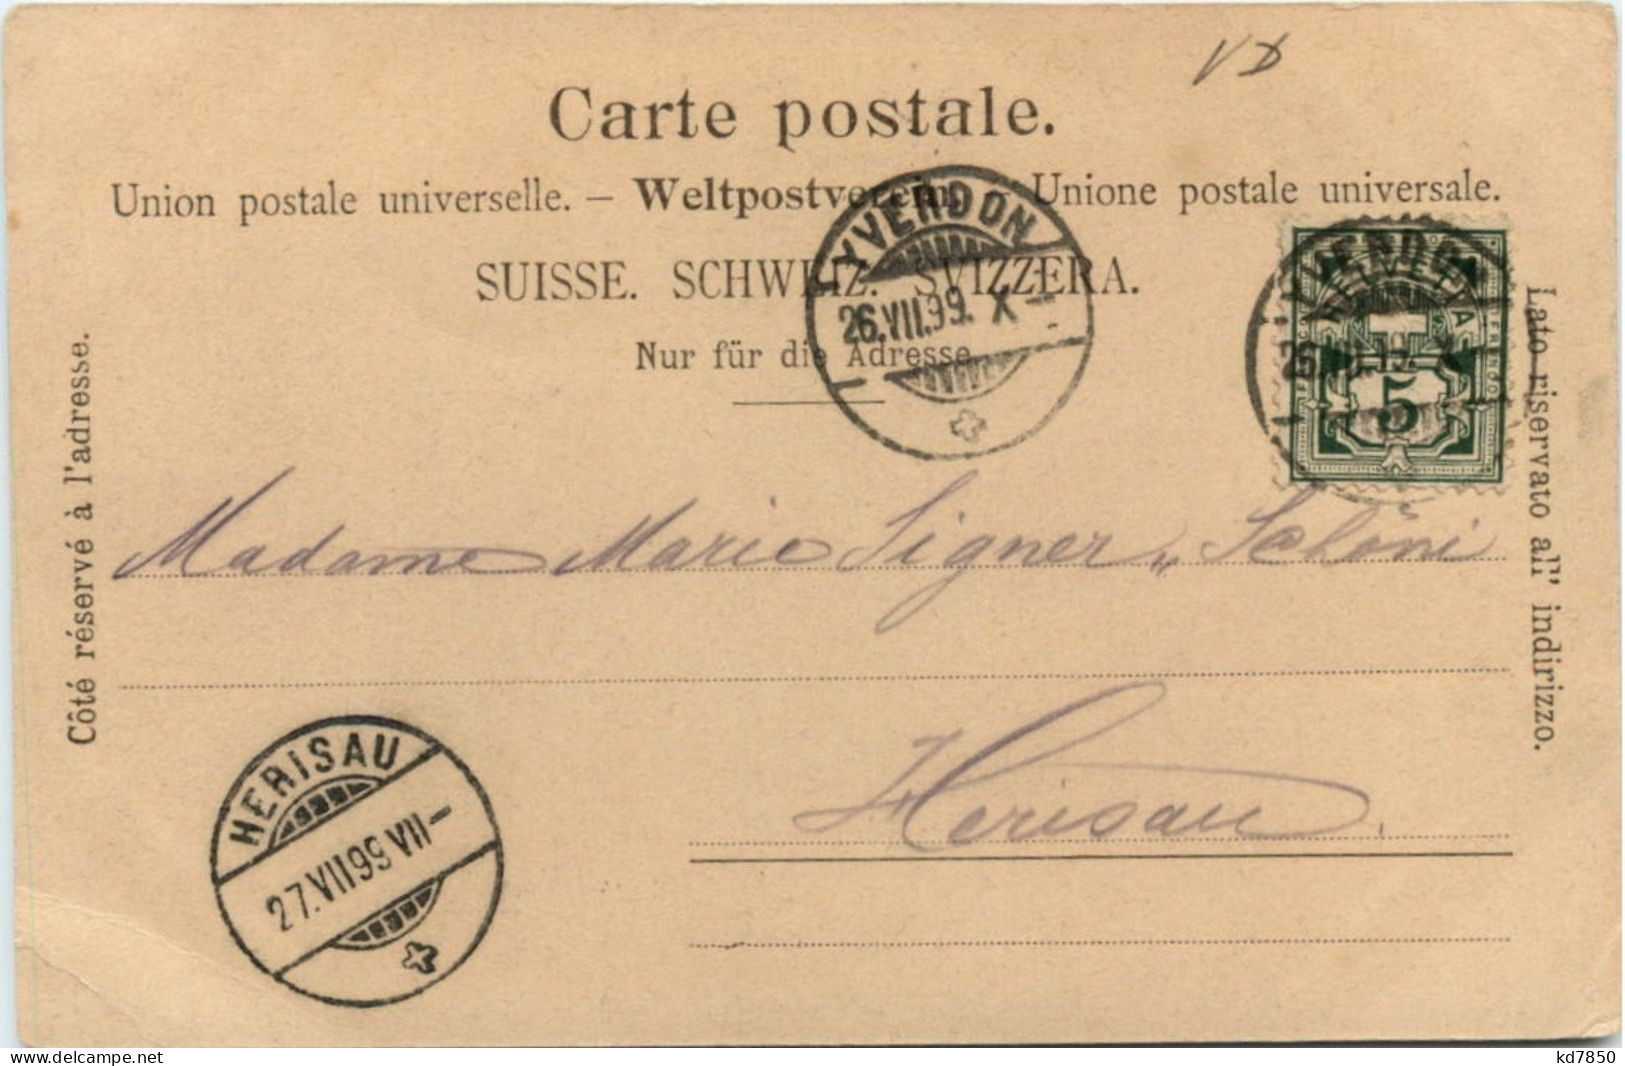 VD
Carte postale.
Union postale universelle. – Weltpostverein. Unione postale universale.
SUISSE. SCHWEIZ. SVIZZERA.
Nur für die Adresse
YVERDON
26.VII.99. X–
YVERDON
HELVETIA
5
Côté réservé à l'adresse.
Lato riservato all' indirizzo.
Madame Marie Signer „ Schöni
Herisau.
HERISAU
27.VII99 VII–
www.delcampe.net
kd7850